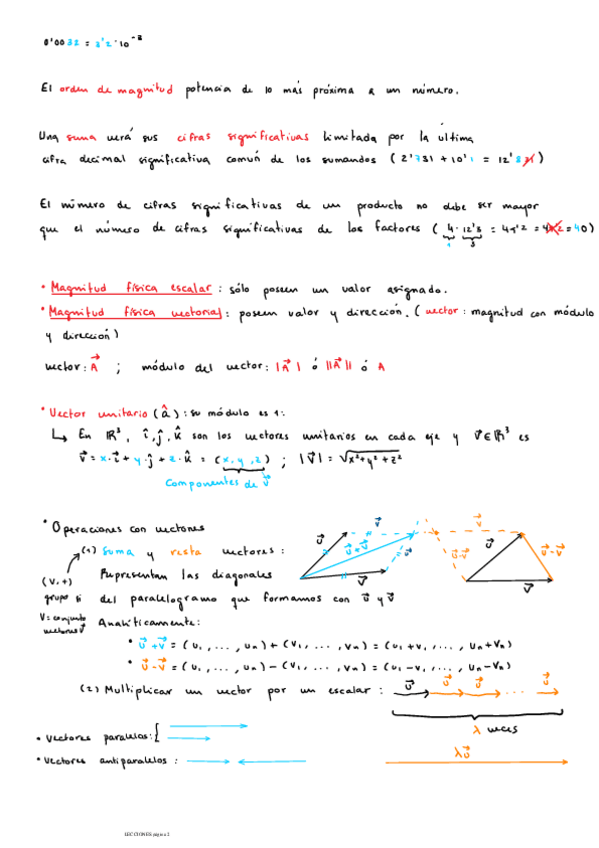 0'0032 = 3'2·10⁻³
El orden de magnitud potencia de 10 más próxima a un número.
Una suma verá sus cifras significativas limitada por la última
cifra decimal significativa común de los sumandos (2'731 + 10'1 = 12'831)
El número de cifras significativas de un producto no debe ser mayor
que el número de cifras significativas de los factores (4 · 12'3 = 49'2 = 40)
1 3
• Magnitud física escalar: sólo poseen un valor asignado.
• Magnitud física vectorial: poseen valor y dirección. (vector: magnitud con módulo
y dirección)
vector: A⃗ ; módulo del vector: |A⃗| ó ||A⃗|| ó A
• Vector unitario (â): su módulo es 1:
↳ En ℝ³, î, ĵ, k̂ son los vectores unitarios en cada eje y v⃗ ∈ ℝ³ es
v⃗ = x·î + y·ĵ + z·k̂ = (x, y, z) ; |v⃗| = √(x²+y²+z²)
Componentes de v⃗
• Operaciones con vectores
(1) suma y resta vectores:
(V,+) Representan las diagonales
grupo si del paralelogramo que formamos con u⃗ y v⃗
V = conjunto vectores v⃗
Analíticamente:
• u⃗+v⃗ = (u₁, ..., uₙ) + (v₁, ..., vₙ) = (u₁+v₁, ..., uₙ+vₙ)
• u⃗-v⃗ = (u₁, ..., uₙ) - (v₁, ..., vₙ) = (u₁-v₁, ..., uₙ-vₙ)
u⃗ u⃗+v⃗ v⃗
u⃗ v⃗ u⃗-v⃗
(2) Multiplicar un vector por un escalar: u⃗ u⃗ u⃗ ... u⃗
λ veces
• Vectores paralelos:
• Vectores antiparalelos:
λu⃗
LECCIONES página 2